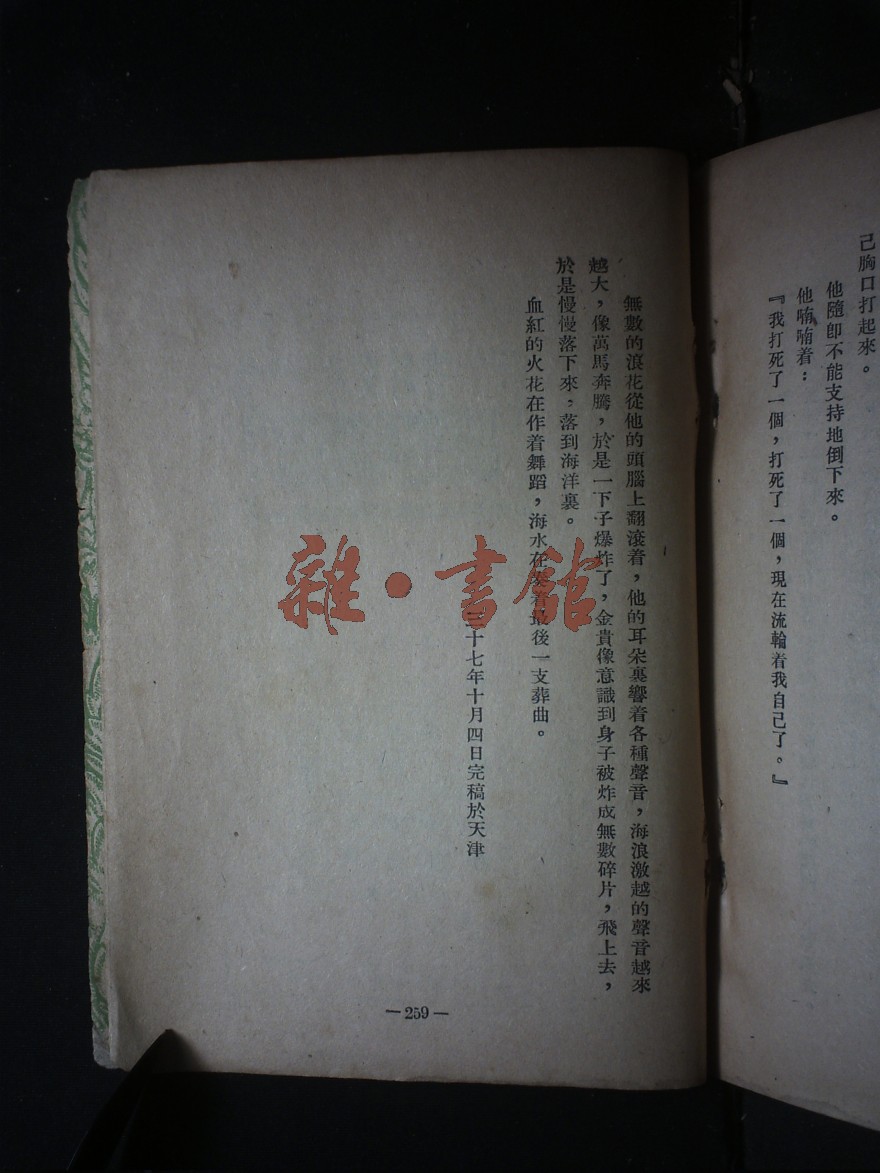 己胸口打起來。
他隨卽不能支持地倒下來。
他喃喃着：
『我打死了一個，打死了一個，現在流輪着我自己了。』
無數的浪花從他的頭腦上翻滾着，他的耳朶裏響着各種聲音，海浪激越的聲音越來
越大，像萬馬奔騰，於是一下子爆炸了，金貴像意識到身子被炸成無數碎片，飛上去，
於是慢慢落下來，落到海洋裏。
血紅的火花在作着舞蹈，海水在奏着最後一支葬曲。
三十七年十月四日完稿於天津
—259—
雜·書館